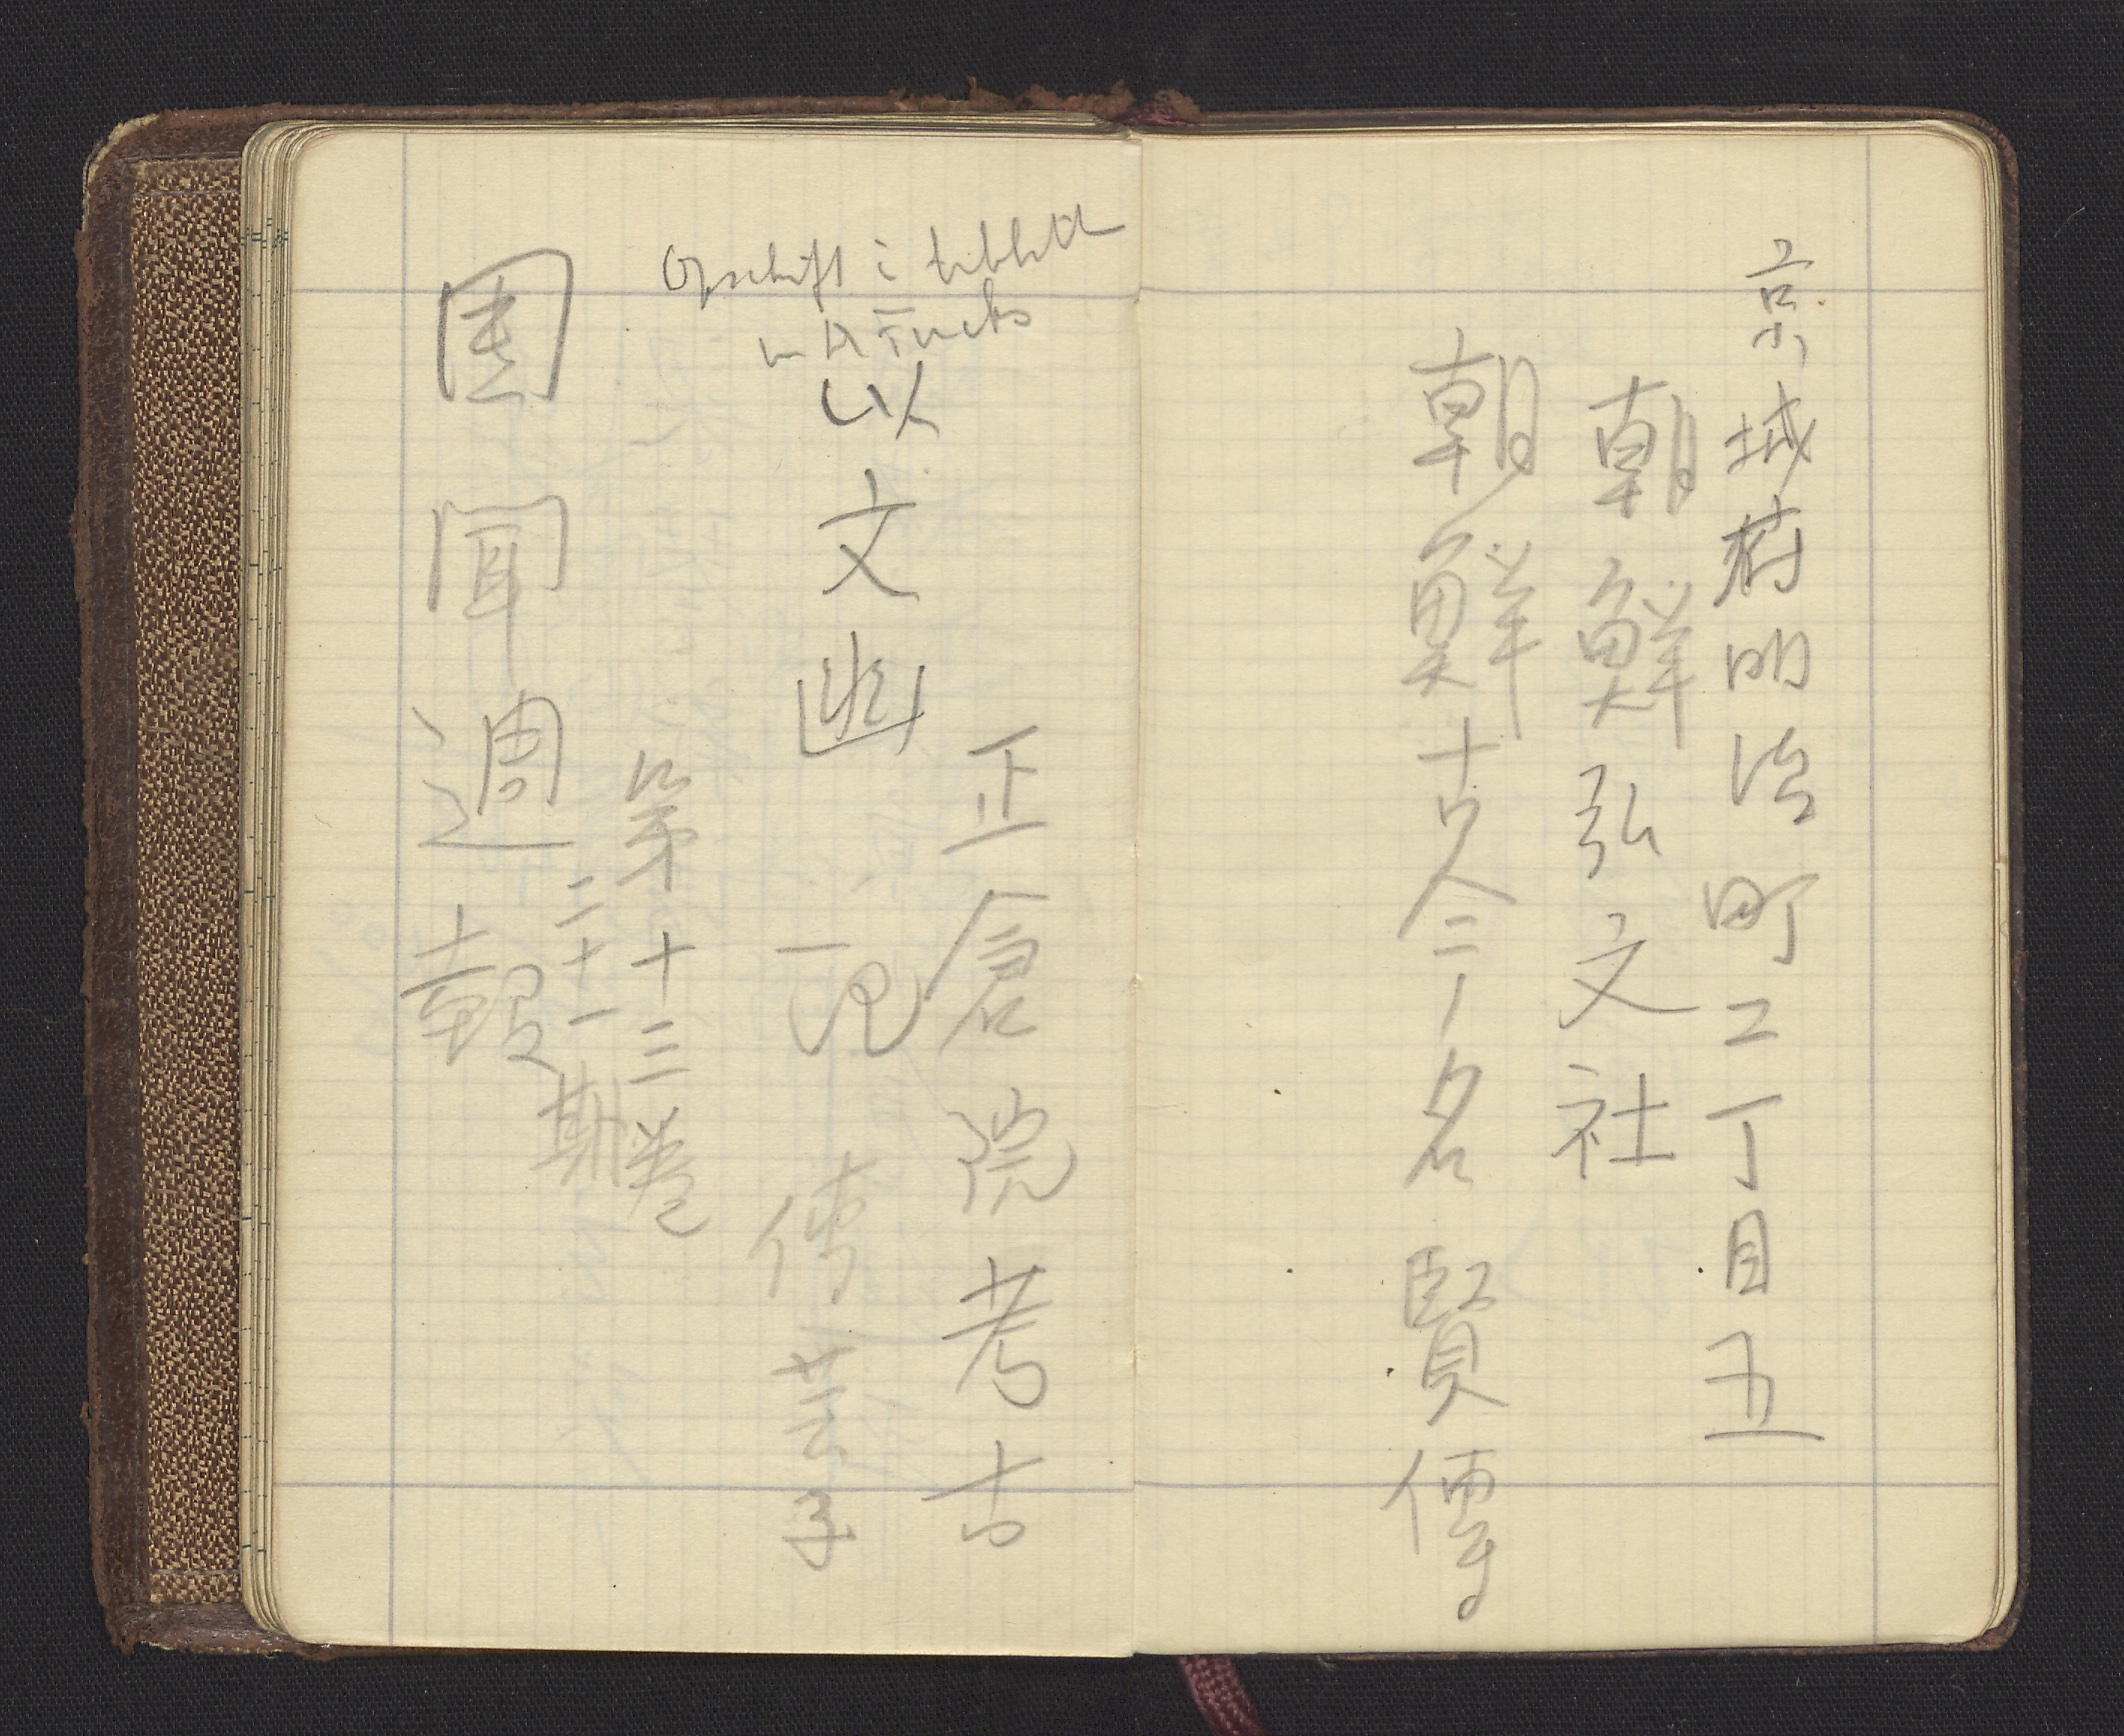 京城府明治町二丁目五
朝鮮弘文社
朝鮮古今名賢傳
正倉院考古
記 傅芸子
Opschrift i
以文幽
第十三卷
二十一期
国聞週報